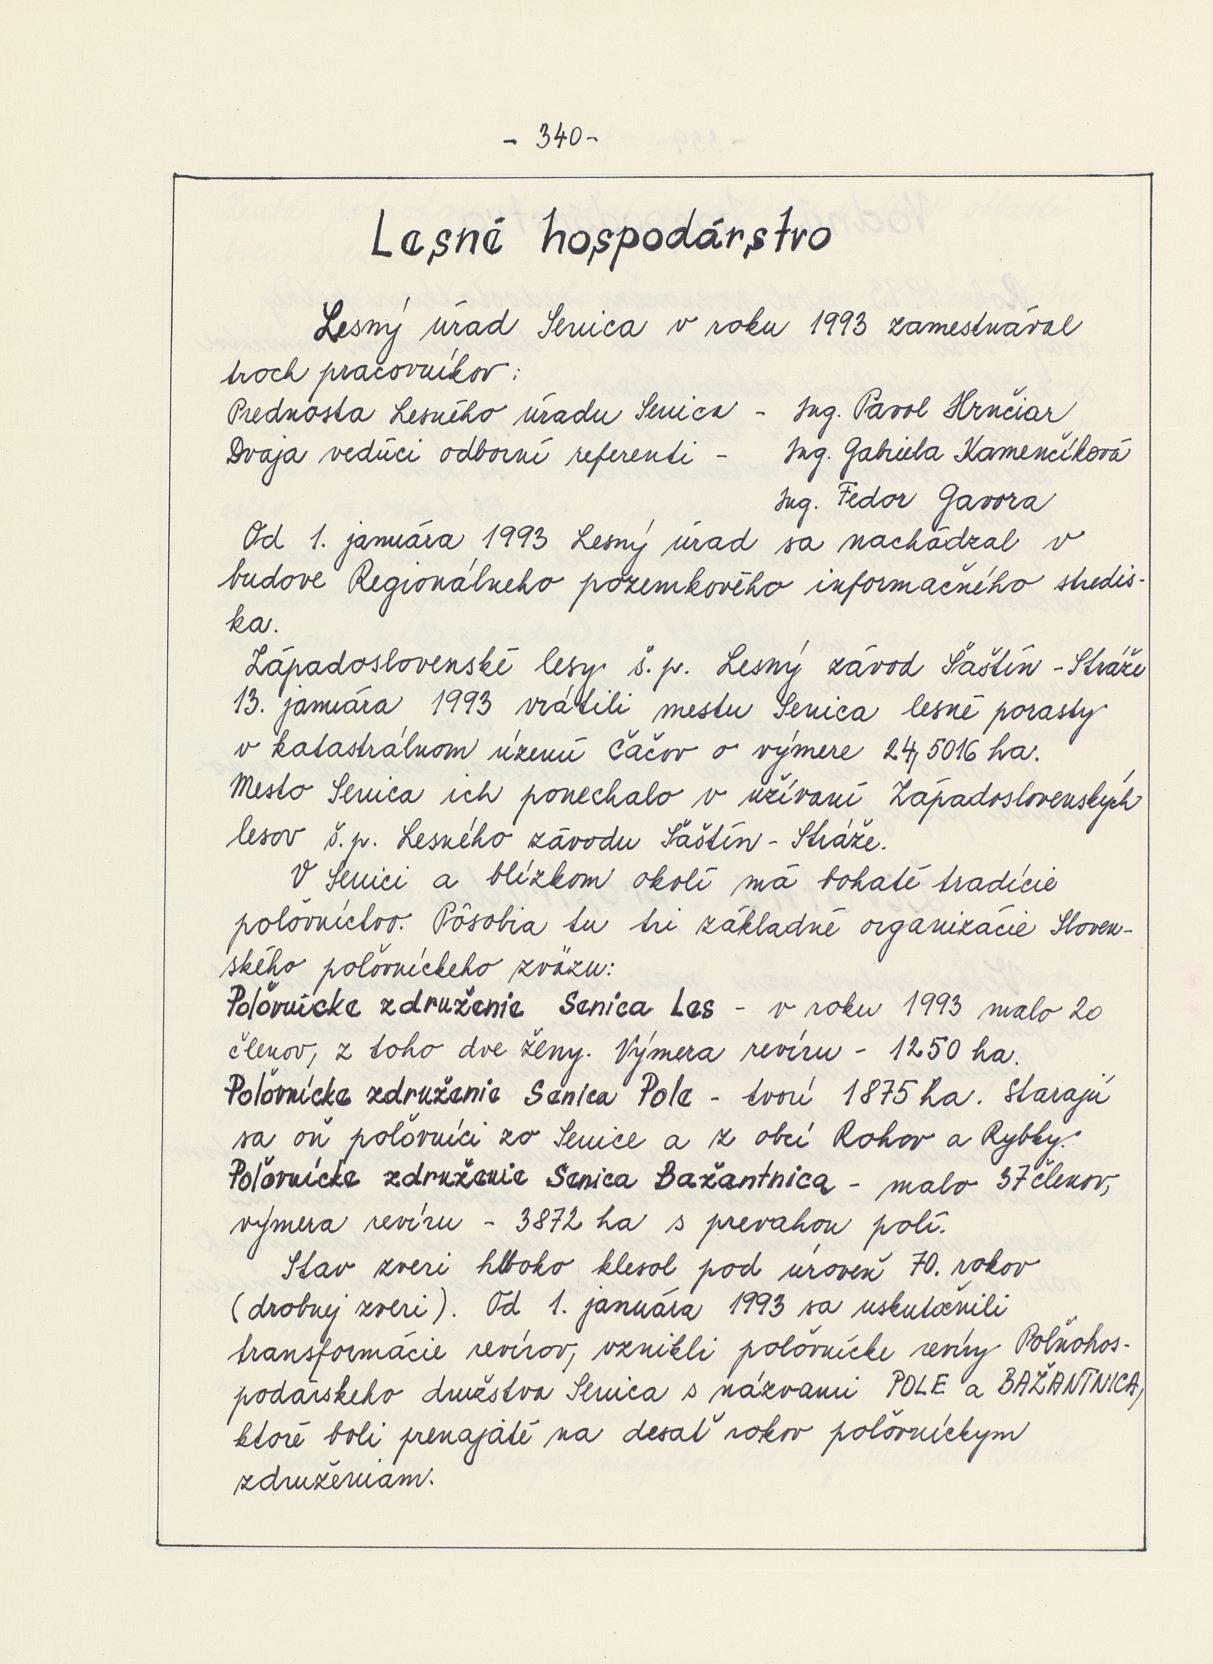 - 340-
Lesné hospodárstvo
Lesný úrad Senica v roku 1993 zamestnával
troch pracovníkov:
Prednosta Lesného úradu Senica - Ing. Pavol Hrnčiar
Dvaja vedúci odborní referenti - Ing. Gabriela Kamenčíková
Ing. Fedor Gavora
Od 1. januára 1993 Lesný úrad sa nachádzal v
budove Regionálneho pozemkového informačného stredis-
ka.
Západoslovenské lesy š.p. Lesný závod Šaštín - Stráže
13. januára 1993 vrátili mestu Senica lesné porasty
v katastrálnom území Čáčov o výmere 24,5016 ha.
Mesto Senica ich ponechalo v užívaní Západoslovenských
lesov š.p. Lesného závodu Šaštín - Stráže.
V Senici a blízkom okolí má bohaté tradície
poľovníctvo. Pôsobia tu tri základné organizácie Sloven-
ského poľovníckeho zväzu:
Poľovnícke združenie Senica Les - v roku 1993 malo 20
členov, z toho dve ženy. Výmera revíru - 1250 ha.
Poľovnícke združenie Senica Pole - tvorí 1875 ha. Starajú
sa oň poľovníci zo Senice a z obcí Rohov a Rybky.
Poľovnícke združenie Senica Bažantnica - malo 37 členov,
výmera revíru - 3872 ha s prevahou polí.
Stav zveri hlboko klesol pod úroveň 70. rokov
(drobnej zveri). Od 1. januára 1993 sa uskutočnili
transformácie revírov, vznikli poľovnícke revíry Poľnohos-
podárskeho družstva Senica s názvami POLE a BAŽANTNICA,
ktoré boli prenajaté na desať rokov poľovníckym
združeniam.